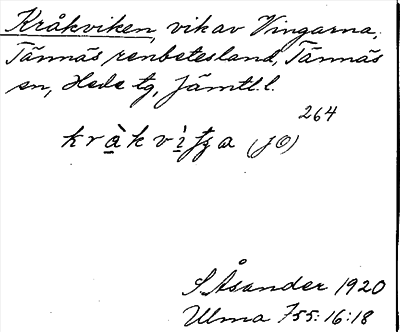 Kråkviken, vik av Vingarna,
Tännäs renbetesland, Tännäs
sn, Hede tg, Jämtl.l.
264
(JO)
S. Åsander 1920
Ulma 755:16:18